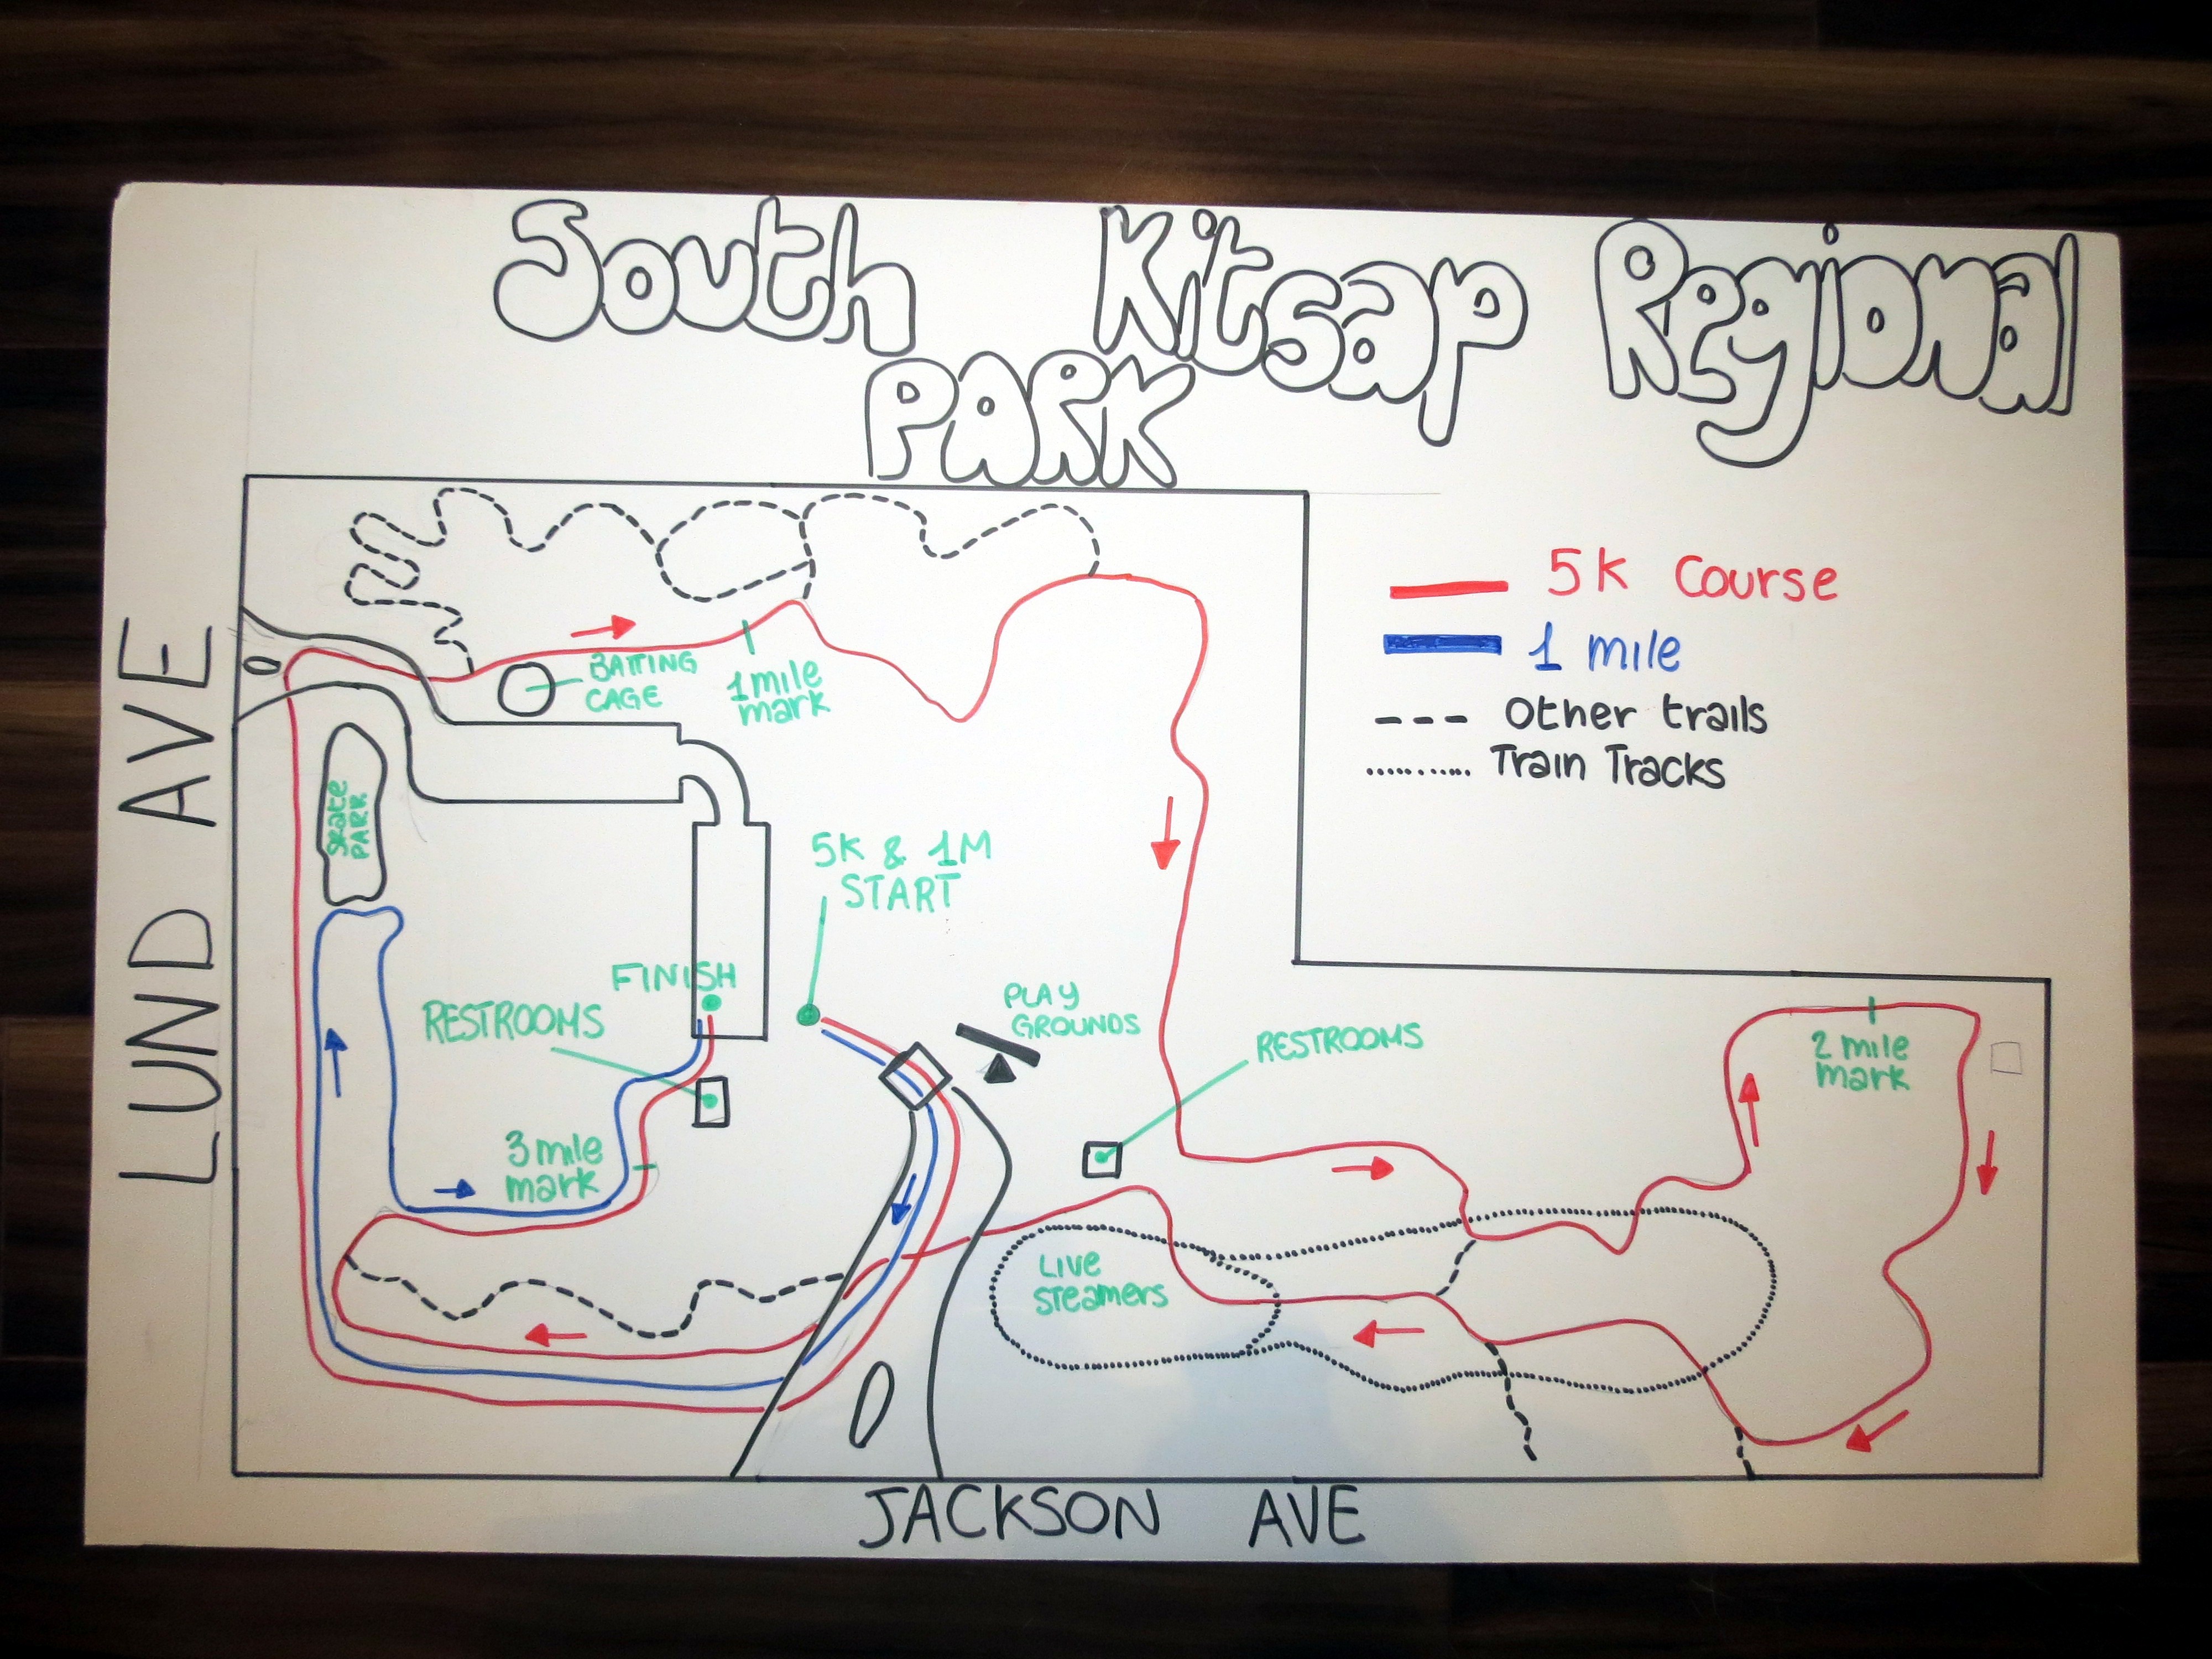 South Kitsap Regional
PARK
5K Course
1 mile
Other trails
Train Tracks
LUND AVE
BATTING
CAGE
1 mile
mark
Skate
PARK
5K & 1M
START
FINISH
RESTROOMS
PLAY
GROUNDS
RESTROOMS
2 mile
mark
3 mile
mark
LIVE
Steamers
JACKSON AVE